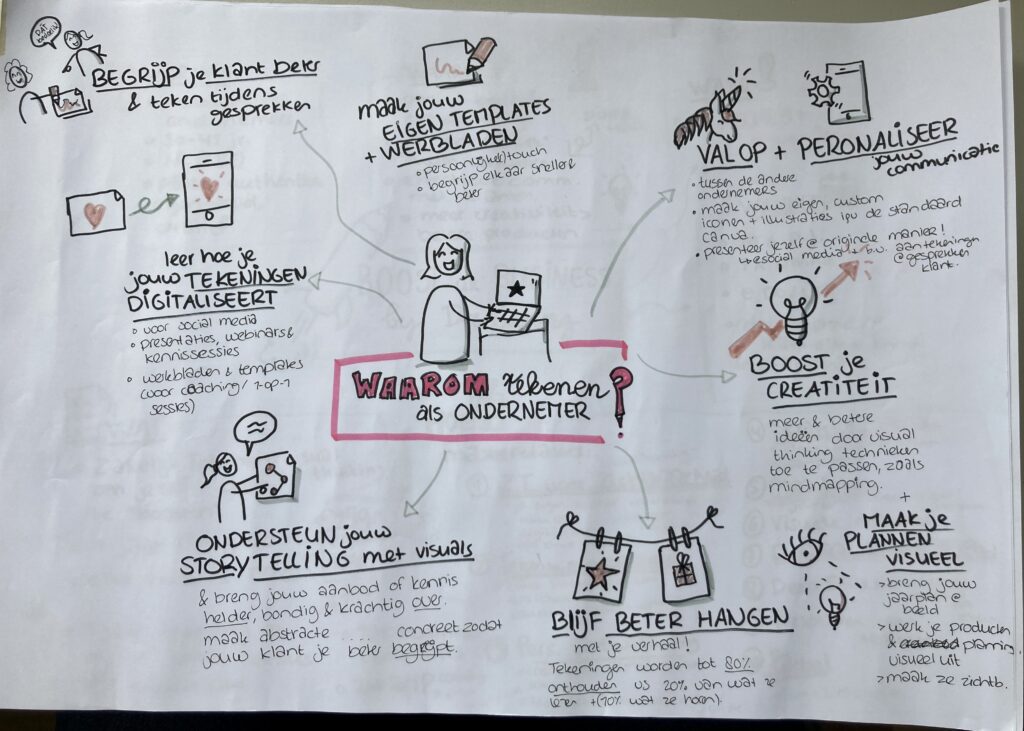 DAT bedoel ik
BEGRIJP je klant beter
& teken tijdens
gesprekken
maak jouw
EIGEN TEMPLATES
+ WERBLADEN
• persoonlijke touch
• begrijp elkaar sneller &
beter
VAL OP + PERONALISEER
jouw
communicatie
• tussen de andere
ondernemers
• maak jouw eigen, custom
iconen + illustraties ipv de standaard
Canva.
• presenteer jezelf @ originele manier!
↳ social media + b.v. aantekeningen
@gesprekken
klant.
leer hoe je
jouw TEKENINGEN
DIGITALISEERT
• voor social media
• presentaties, webinars &
kennissessies
• werkbladen & templates
(voor coaching/1-op-1
sessies)
WAAROM tekenen
als ONDERNEMER ?
BOOST je
CREATITEIT
meer & betere
ideeën door visual
thinking technieken
toe te passen, zoals
mindmapping.
+
MAAK je
PLANNEN
VISUEEL
> breng jouw
jaarplan @
beeld
> werk je producten
& planning
visueel uit
> maak ze zichtb.
ONDERSTEUN jouw
STORYTELLING met visuals
& breng jouw aanbod of kennis
helder, bondig & krachtig over.
maak abstracte .... concreet zodat
jouw klant je beter begrijpt.
BLIJF BETER HANGEN
met je verhaal!
Tekeningen worden tot 80%
onthouden vs 20% van wat ze
lezen + (10% wat ze horen).